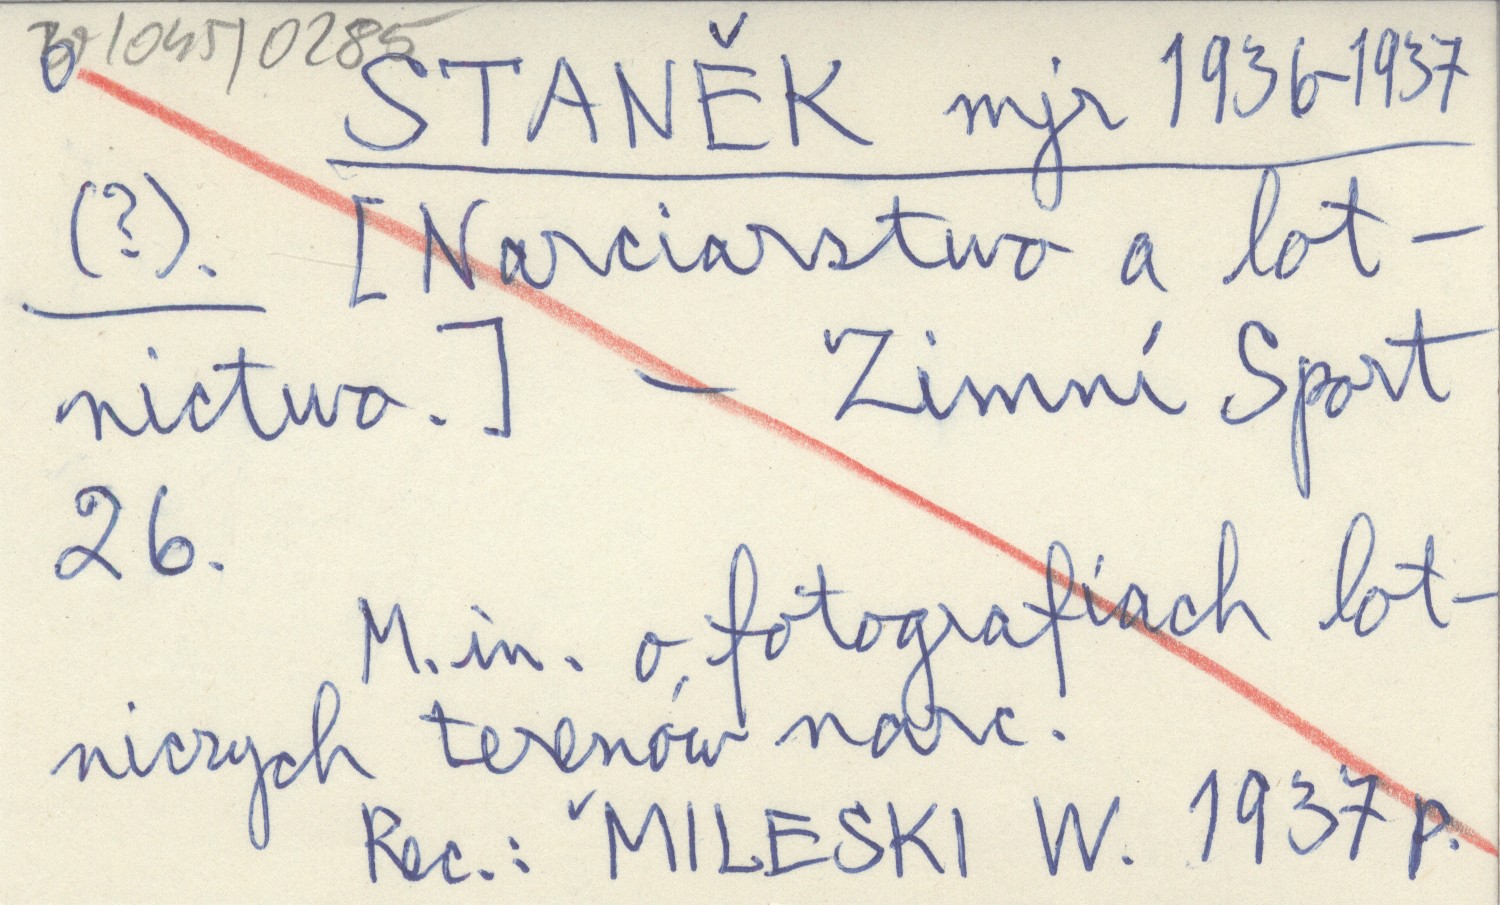 /045/0285
STANĚK mjr 1936-1937
(?). [Narciarstwo a lot-
nictwo.] – Zimní Sport
26.
M. in. o fotografiach lot-
niczych terenów narc.
Rec.: MILESKI W. 1937 p.